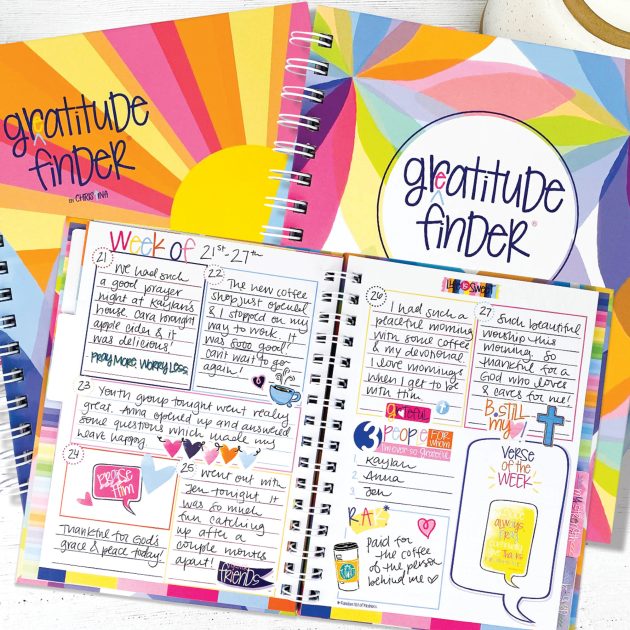 gratitude
finder
BY CHRISTINA
gratitude
finder®
Week of 21st-27th
21
We had such
a good prayer
night at Kaylan's
house. Cara brought
apple cider & it
was delicious!
PRAY MORE, WORRY LESS
22
The new coffee
shop just opened
& I stopped on my
way to work. It
was sooo good!
Can't wait to go
again!
23 Youth group tonight went really
great. Anna opened up and answered
some questions which made my
heart happy.
24
praise
Him
Thankful for God's
grace & peace today!
25 went out with
Jen tonight it
was so much
fun catching
up after a
couple months
apart!
friends
26
I had such a
peaceful morning
with some coffee
& my devotional.
I love mornings
when I get to be
with Him
grateful
Life is Sweet
27 Such beautiful
worship this
morning. So
thankful for a
God who loves
& cares for me!
B. STILL
my
3 PEOPLE FOR WHOM
I'm over-so-grateful
1 Kaylan
2 Anna
3 Jen
RAK
Paid for
the coffee
of the person
behind me
*Random Act of Kindness
VERSE
OF THE
WEEK
always